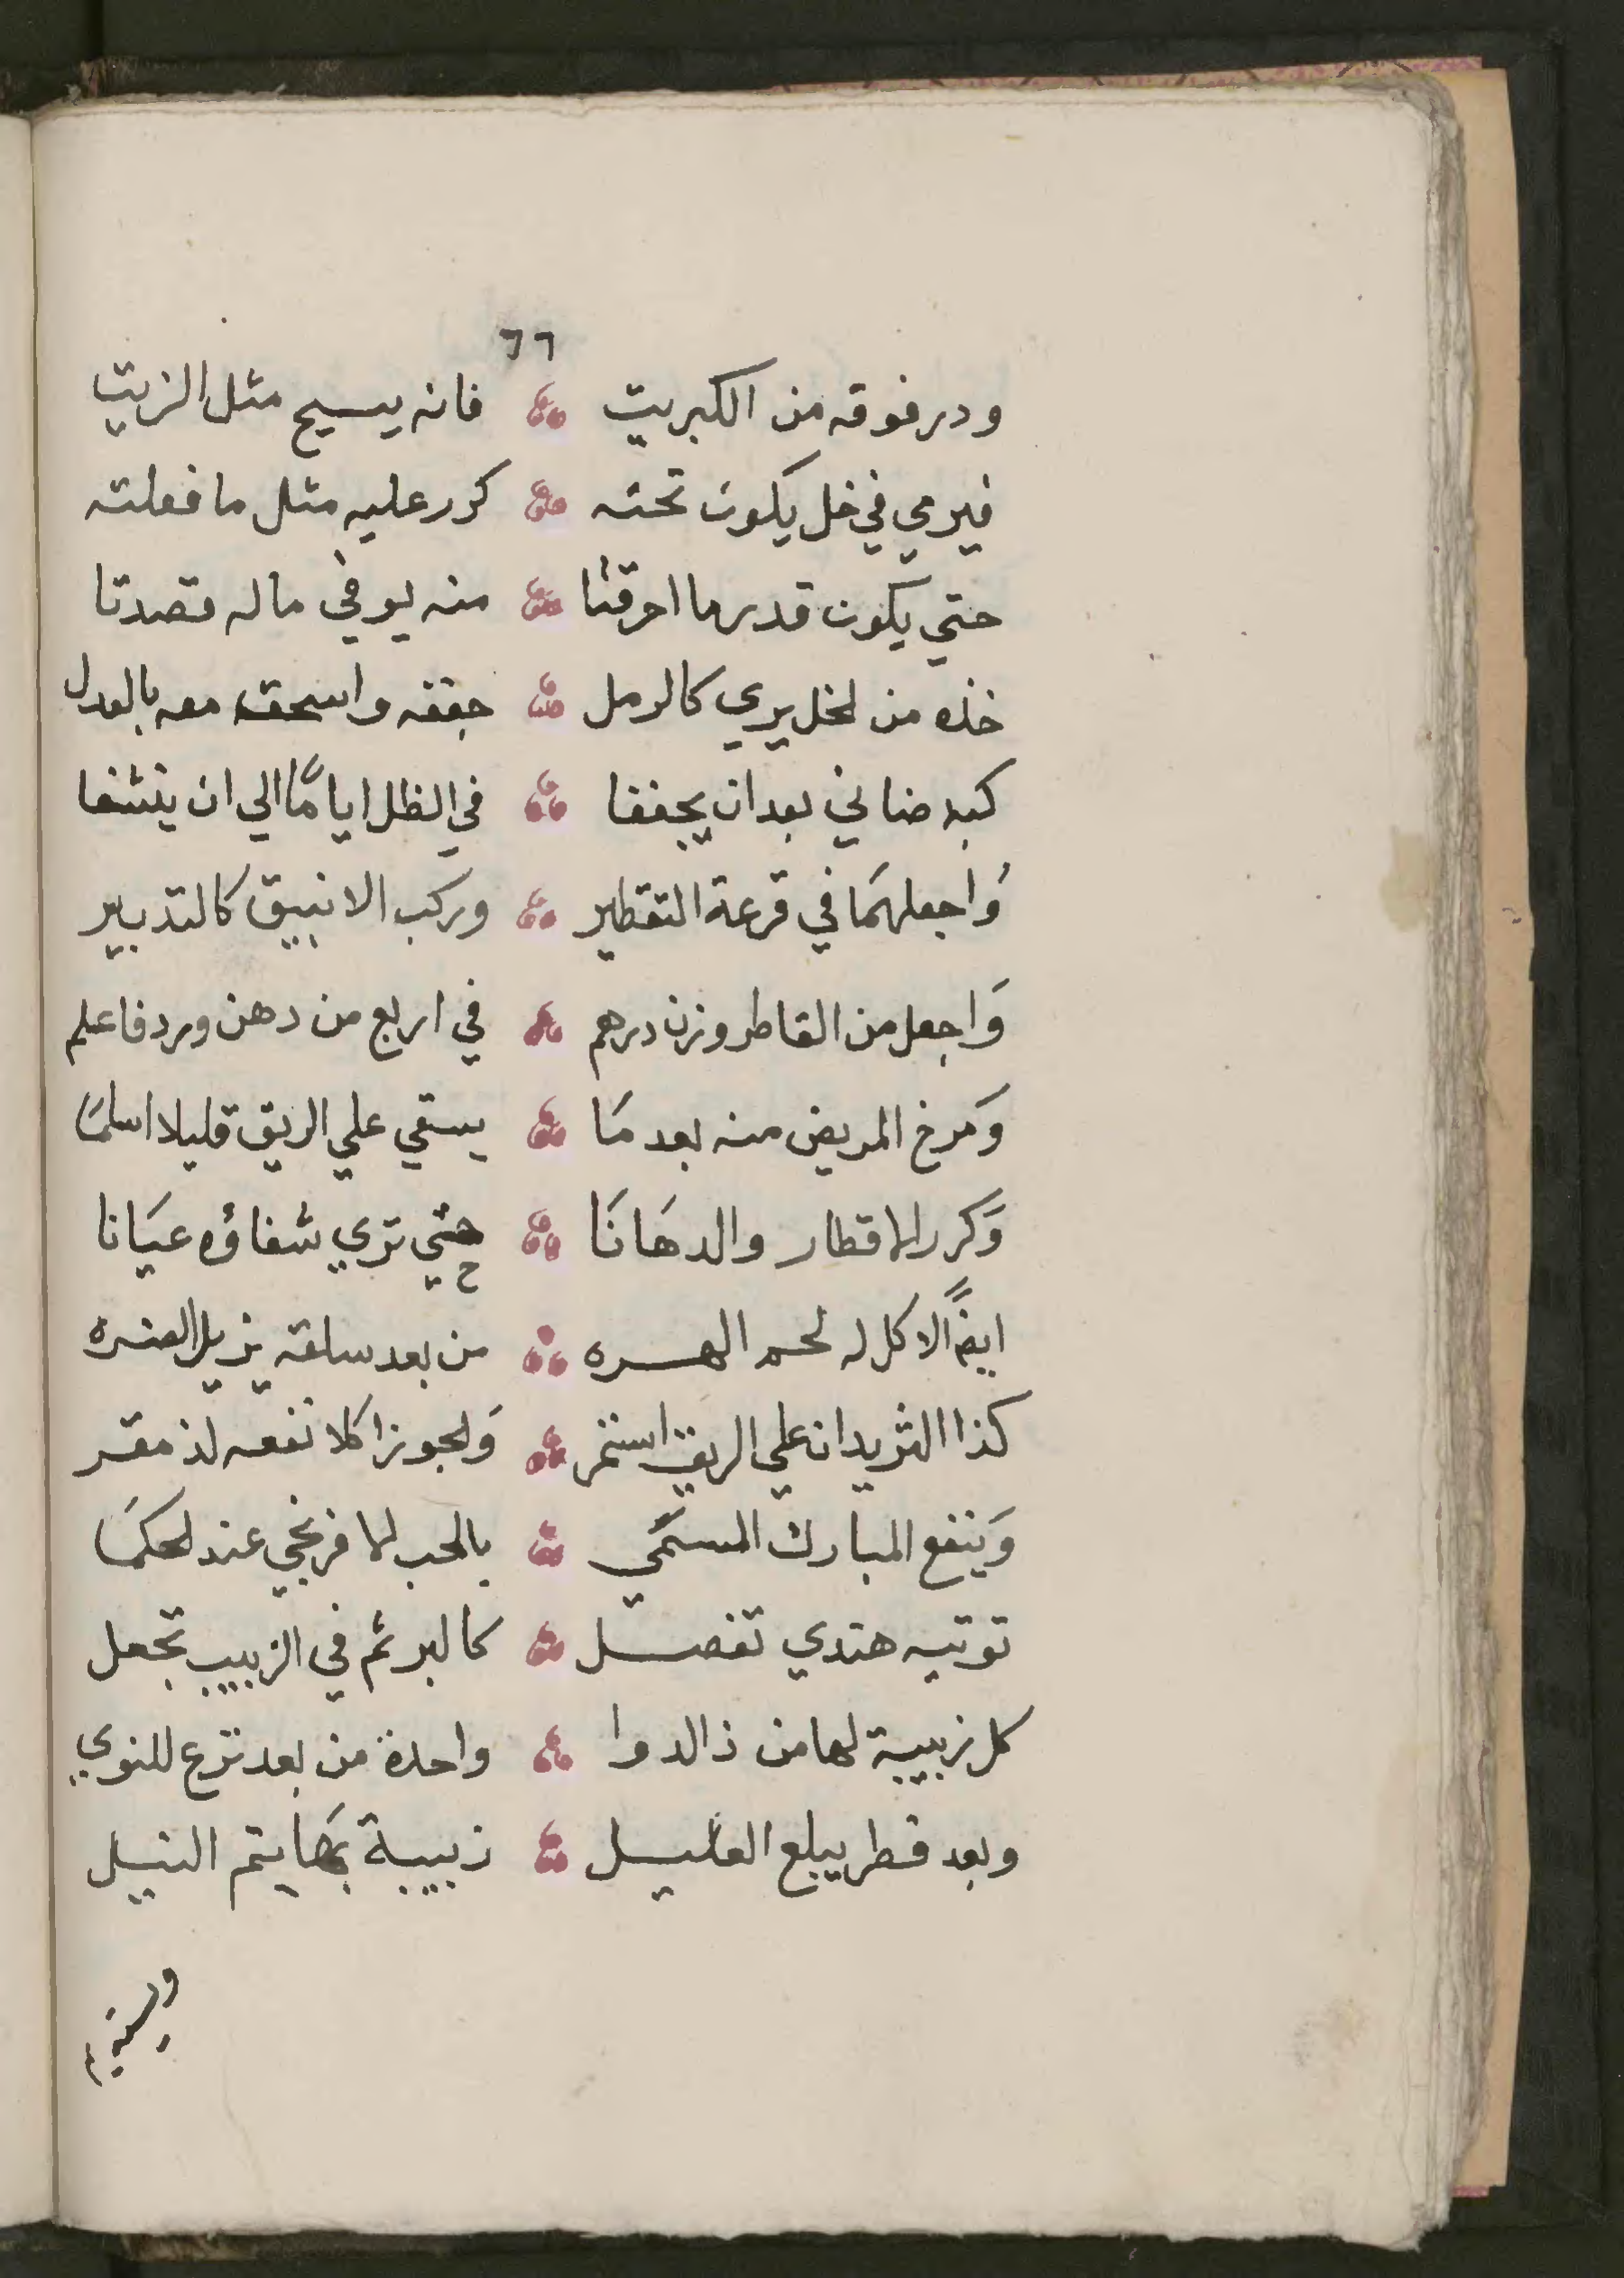 ٦٦
ودر فوقه من الكبريت فانه يسيح مثل الزيت
فيرمي في خل يكون تحته كرر عليه مثل ما فعلته
حتي يكون قدر ما احرقتا منه يوفي ما له قصدتا
خذه من لخل يري كالرمل جففه واسحقه معه بالعدل
كبد ضاني بعد ان يجففا في الظل ايامًا الي ان ينشفا
وَاجعلهمَا في قرعة التقطير وركب الانبيق كالتدبير
وَاجعل من القاطر وزن درهم في اربع من دهن ورد فاعلم
وَمرخ المريض منه بعد مَا يسقي علي الريق قليلا اسلمَا
وَكرر الاقطار والدهَانَا حتي تري شفاؤه عيَانا
ح
ايضًا الاكل له لحم الهره من بعد سلقه يزيل الضره
كذا الثريد ان علي الريق استمر وَلجوز اكلا نفعه لذ مقر
وَينفع المبارك المسمَّي بالحب لافرنجي عند لحكمَا
توتيه هندي تفصل كالبر ثم في الزبيب تجعل
كل زبيبة لها من ذا الدوا واحدة من بعد نزع للنوي
وبعد فطر يبلع العليل زبيبة بهَا يتم النيل